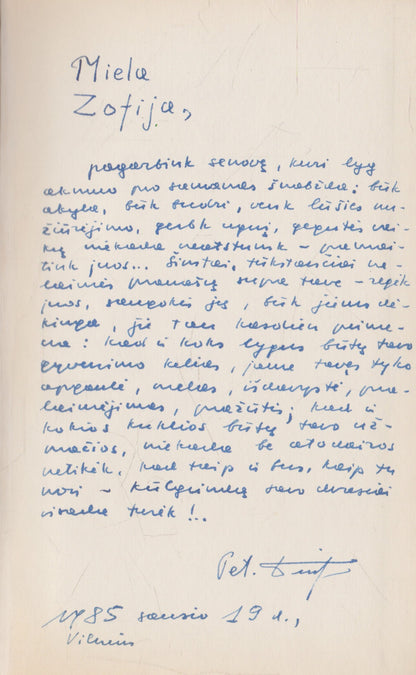 Miela
Zofija,
pagarbink senovę, kuri lyg
akmuo pro samanas šnabžda: būk
akyla, būk budri, venk lūšies
žiūrėjimo, gerbk ugnį, gegutės vai-
kų niekada neatstumk –
tink juos... Šimtai, tūkstančiai ne-
laimės pranašų supa tave – regėk
juos, saugokis jų, būk jiems dė-
kinga, jie tau kasdien prime-
na: kad ir koks lygus būtų tavo
gyvenimo kelias, jame tavęs tyko
apgaulė, melas, išdavystė, pra-
laimėjimas, pražūtis; kad ir
kokios kuklios būtų tavo už-
mačios, niekada be atodairos
netikėk, kad taip ir bus, kaip tu
nori – kūlgrindą savo dvasiai
visada turėk!..
Pet.
1985 sausio 19 d.,
Vilnius